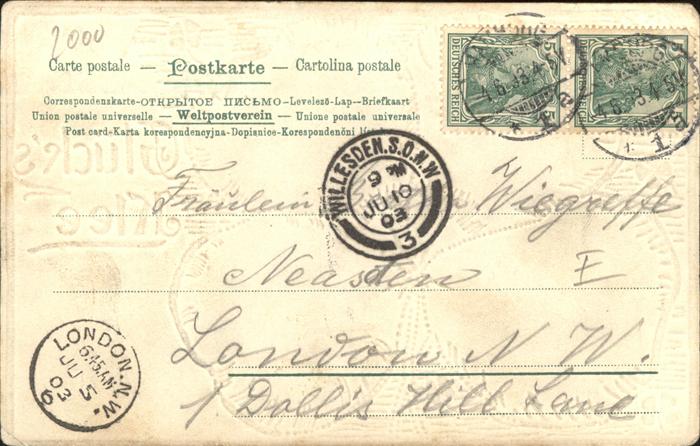 2000
Carte postale — Postkarte — Cartolina postale
Correspondenzkarte-ОТКРЫТОЕ ПИСЬМО-Levelező-Lap--Briefkaart
Union postale universelle — Weltpostverein — Unione postale universale
Post card-Karta korespondencyjna-Dopisnice-Korespondenční
DEUTSCHES REICH
5
WILLESDEN.S.O.N.W
9 PM
JU 10
03
3
Fräulein Wiegreffe
Neasden E
London N W.
1 Dollis Hill Lane
LONDON.N.W.
6.45.AM
JU 5
03
6
Glück's
Klee